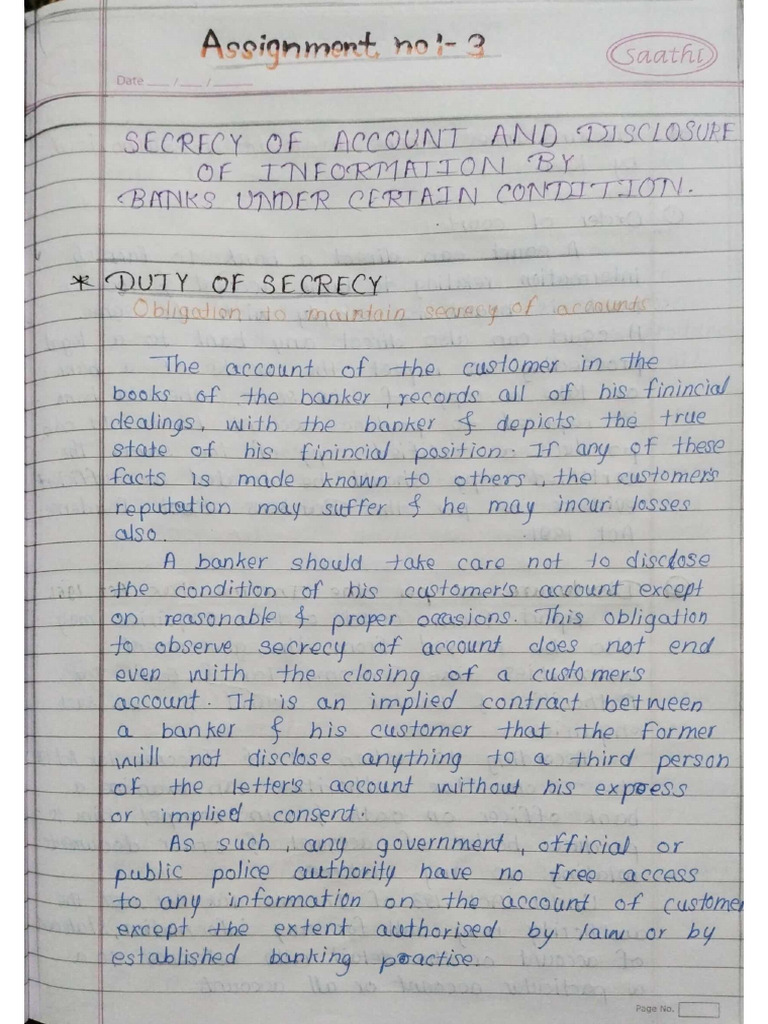 Assignment no :- 3
Saathi
Date ___/___/______
SECRECY OF ACCOUNT AND DISCLOSURE
OF INFORMATION BY
BANKS UNDER CERTAIN CONDITION.
* DUTY OF SECRECY
Obligation to maintain secrecy of accounts
The account of the customer in the
books of the banker, records all of his finincial
dealings, with the banker & depicts the true
state of his finincial position. If any of these
facts is made known to others, the customer's
reputation may suffer & he may incur losses
also.
A banker should take care not to disclose
the condition of his customer's account except
on reasonable & proper occasions. This obligation
to observe secrecy of account does not end
even with the closing of a customer's
account. It is an implied contract between
a banker & his customer that the former
will not disclose anything to a third person
of the letter's account without his express
or implied consent.
As such, any government, official or
public police authority have no free access
to any information on the account of customer
except the extent authorised by law or by
established banking practise.
Page No.